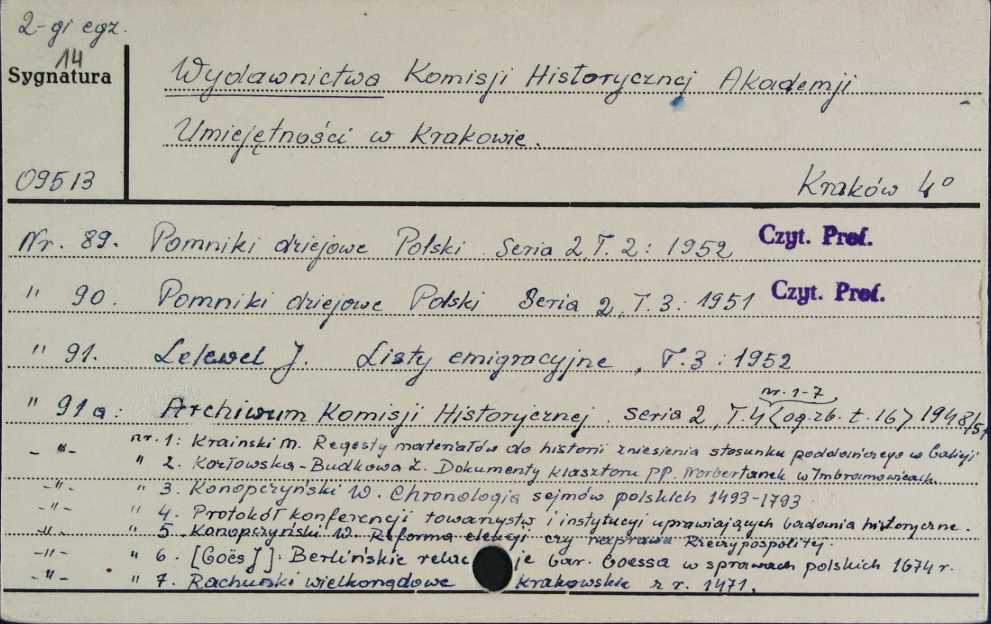 2-gi egz.
14
Sygnatura
Wydawnictwa Komisji Historycznej Akademji
Umiejętności w Krakowie.
09513
Kraków 4°
Nr. 89. Pomniki dziejowe Polski Seria 2, T. 2: 1952 Czyt. Prof.
" 90. Pomniki dziejowe Polski Seria 2, T. 3: 1951 Czyt. Prof.
" 91. Lelewel J. Listy emigracyjne, T. 3: 1952
nr. 1-7
" 91a: Archiwum Komisji Historycznej. seria 2, T. 4 <og. zb. t. 16> 1948/51
-"- nr. 1: Kraiński M. Regesty materiałów do historii zniesienia stosunku poddańczego w Galicji
" 2. Kozłowska-Budkowa Z. Dokumenty klasztoru PP. Norbertanek w Imbramowicach.
-"- " 3. Konopczyński W. Chronologia sejmów polskich 1493-1793
-"- " 4. Protokół konferencji towarzystw i instytucyi uprawiających badania historyczne.
-"- " 5. Konopczyński W. Reforma elekcji czy naprawa Rzeczypospolitej.
-"- " 6. [Goës J]: Berlińskie relac je bar. Goessa w sprawach polskich 1674 r.
-"- " 7. Rachunki wielkorządowe krakowskie z r. 1471.